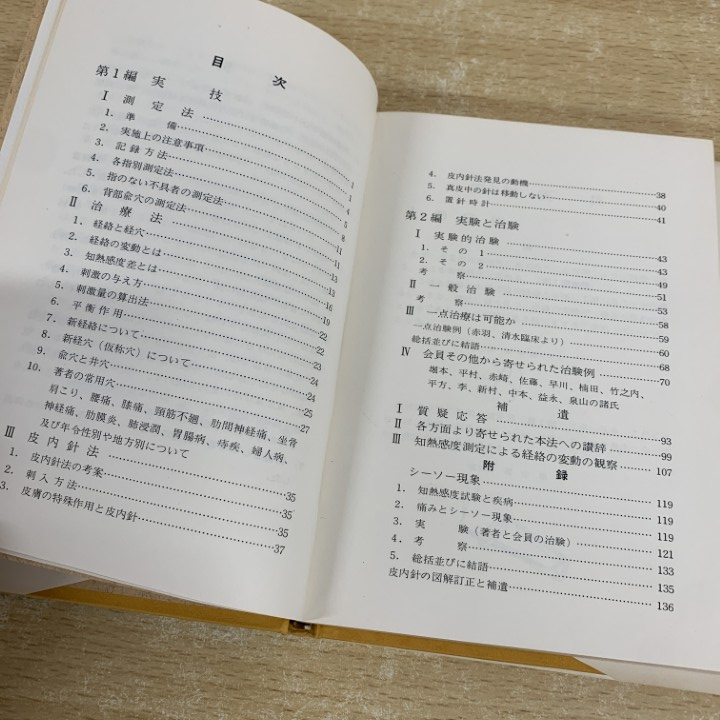 目次
第1編 実技
Ⅰ 測定法
1. 準備 1
2. 実施上の注意事項 1
3. 記録方法 4
4. 各指別測定法 4
5. 指のない不具者の測定法 5
6. 背部兪穴の測定法 8
Ⅱ 治療法 11
1. 経絡と経穴 11
2. 経絡の変動とは 11
3. 知熱感度差とは 13
4. 刺激の与え方 16
5. 刺激量の算出法 19
6. 平衡作用 22
7. 新経絡について 22
8. 新経穴(仮称穴)について 23
9. 兪穴と井穴 24
10. 著者の常用穴 24
肩こり、腰痛、膝痛、頸筋不廻、肋間神経痛、坐骨 25
神経痛、肋膜炎、肺浸潤、胃腸病、痔疾、婦人病、 27
及び年令性別や地方別について
Ⅲ 皮内針法
1. 皮内針法の考案 35
2. 刺入方法 35
3. 皮膚の特殊作用と皮内針 35
37
4. 皮内針法発見の動機 38
5. 真皮中の針は移動しない 40
6. 置針時計 41
第2編 実験と治験
Ⅰ 実験的治験 43
1. その1 43
2. その2 49
考察 51
Ⅱ 一般治験 53
考察 58
Ⅲ 一点治療は可能か 59
一点治験例(赤羽、清水臨床より) 60
総括並びに結語 68
Ⅳ 会員その他から寄せられた治験例 70
堀本、平村、赤崎、佐藤、早川、楠田、竹之内、
平方、李、新村、中本、益永、泉山の諸氏
補遺
Ⅰ 質疑応答 93
Ⅱ 各方面より寄せられた本法への讃辞 99
Ⅲ 知熱感度測定による経絡の変動の観察 107
附録
シーソー現象 119
1. 知熱感度試験と疾病 119
2. 痛みとシーソー現象 119
3. 実験(著者と会員の治験) 121
4. 考察 133
5. 総括並びに結語 135
皮内針の図解訂正と補遺 136